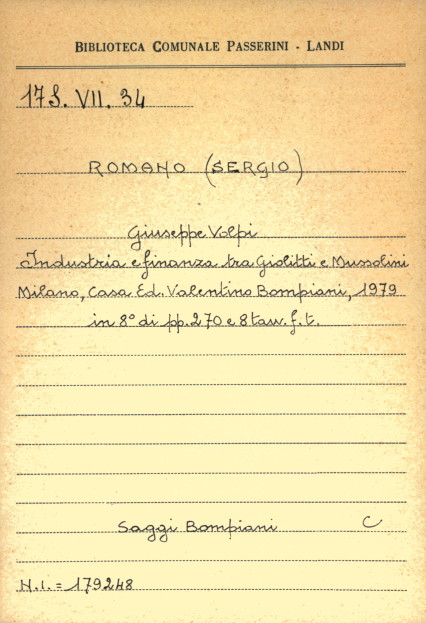 BIBLIOTECA COMUNALE PASSERINI - LANDI
17S. VII. 34
ROMANO (SERGIO)
Giuseppe Volpi
Industria e finanza tra Giolitti e Mussolini
Milano, Casa Ed. Valentino Bompiani, 1979
in 8° di pp. 270 e 8 tav. f. t.
Saggi Bompiani C
N.i. = 179248